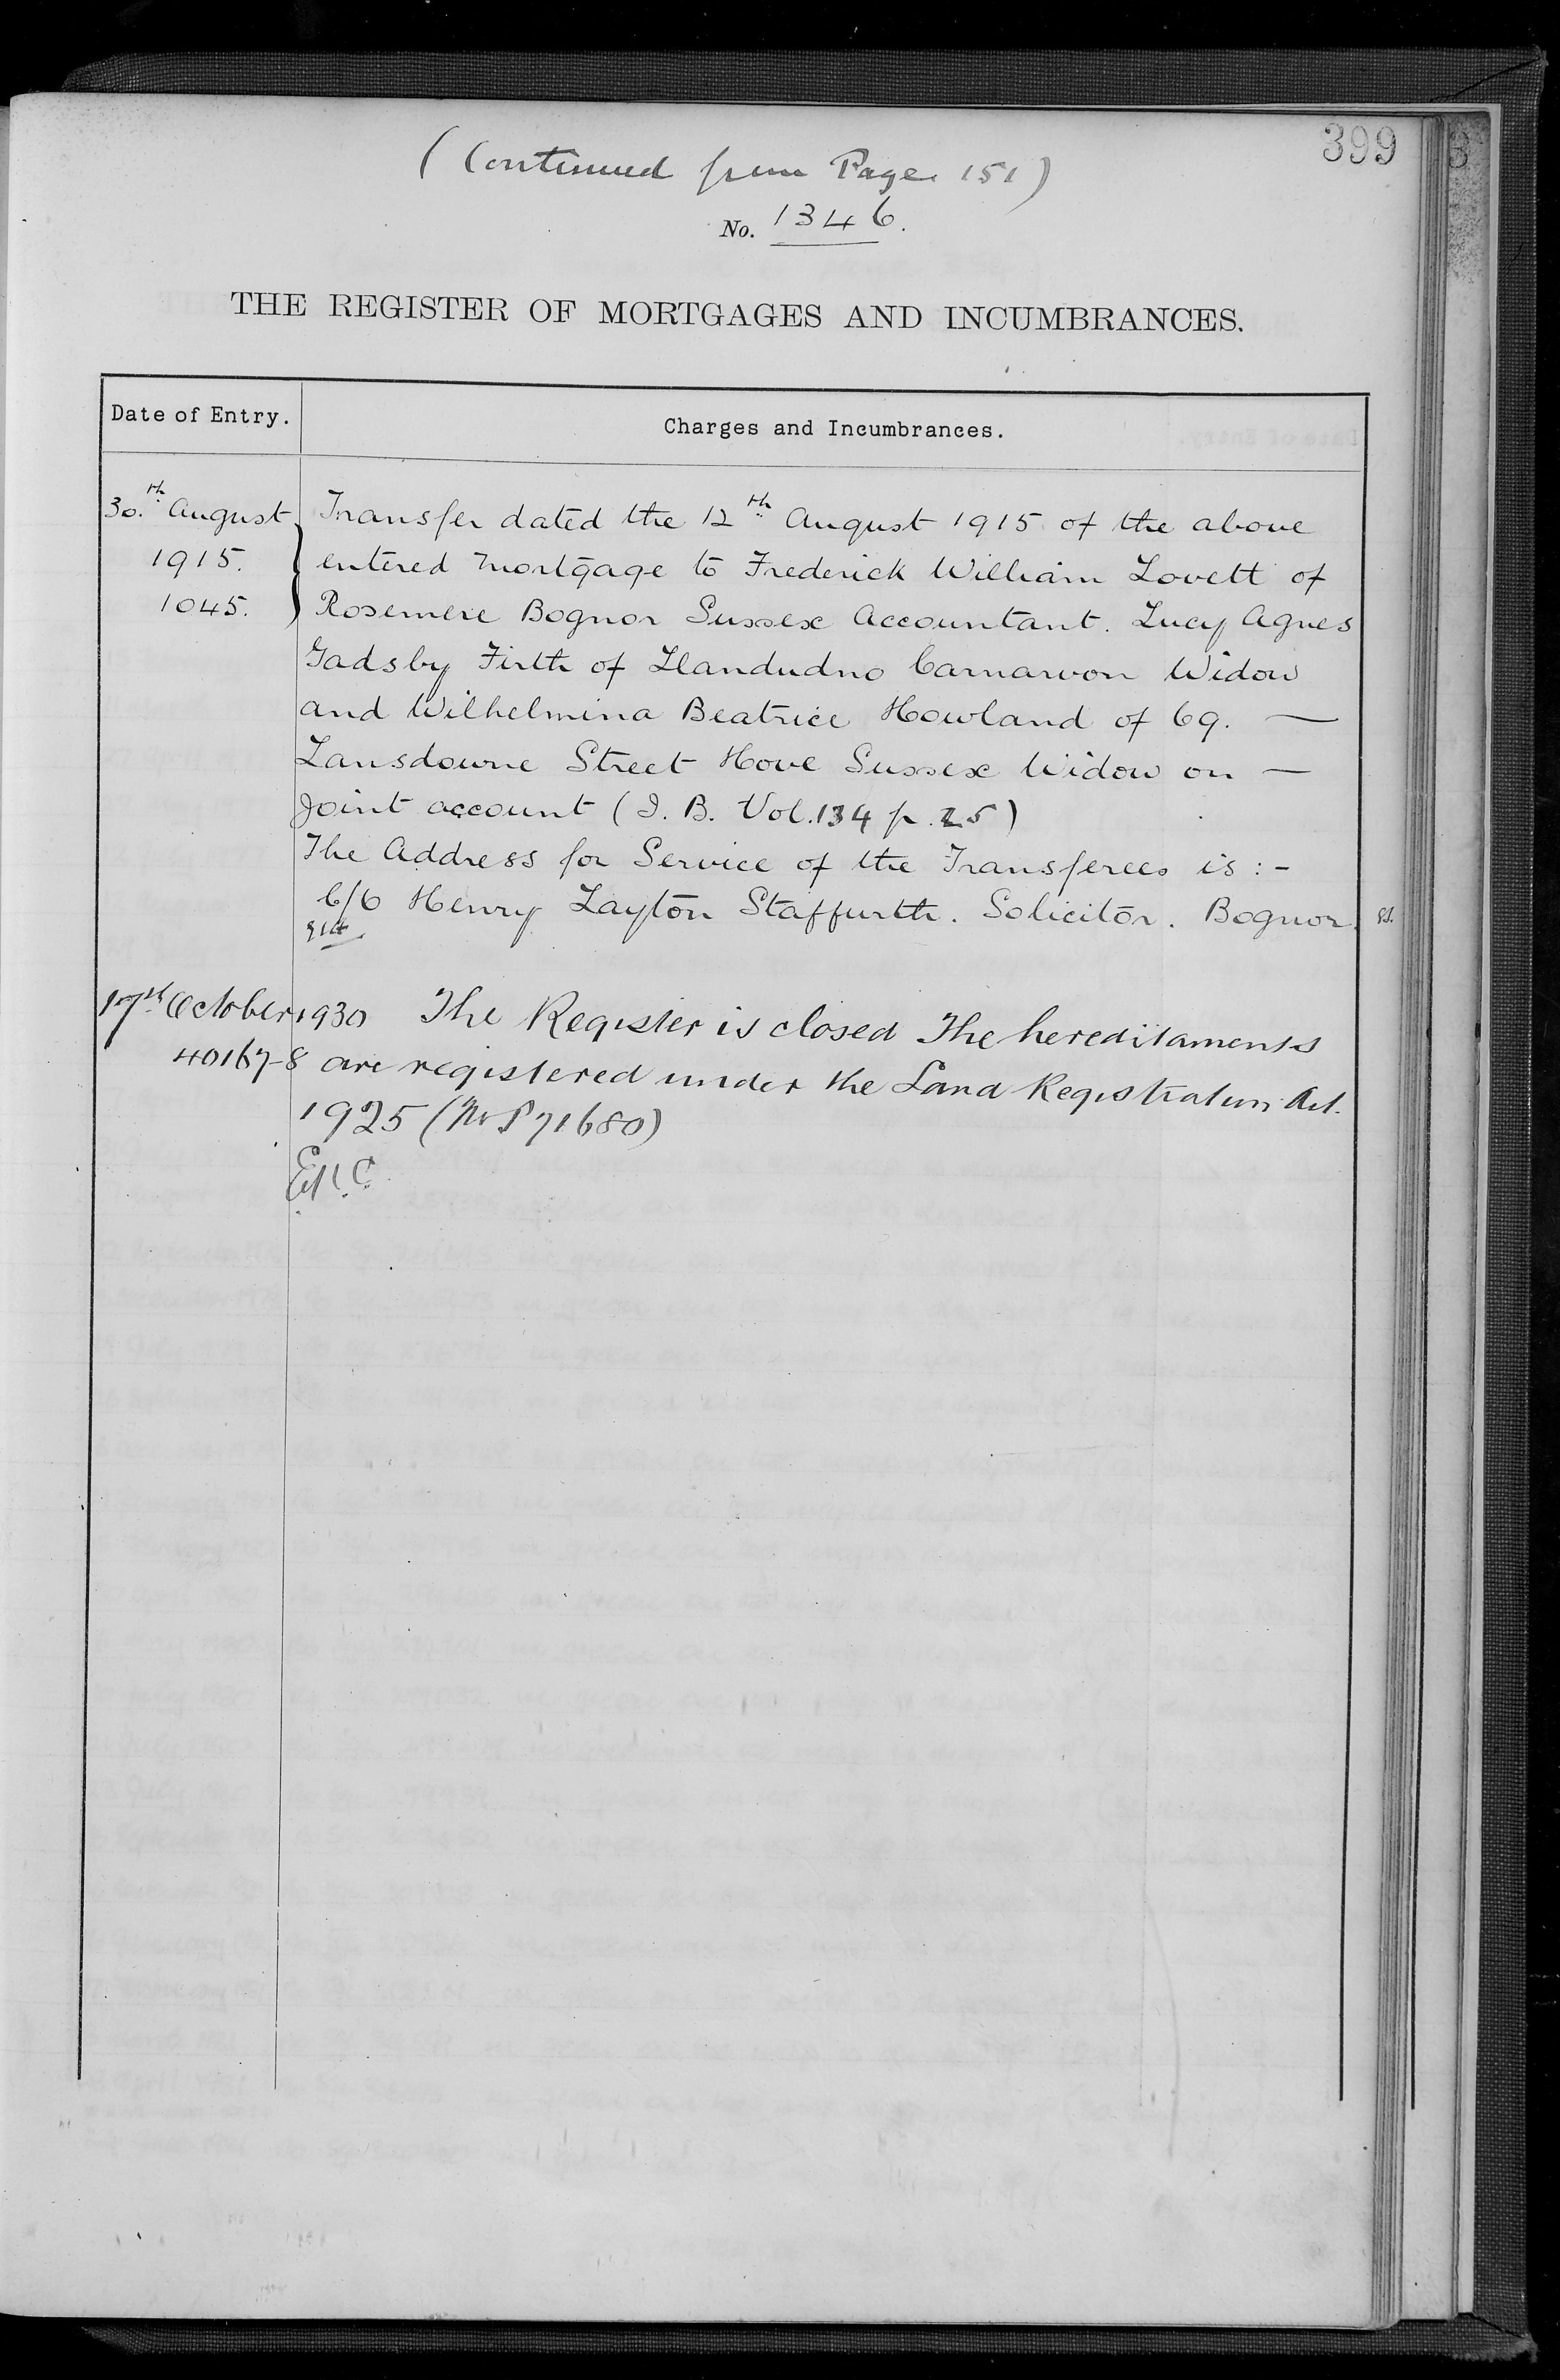 399
(Continued from Page 151)
No. 1346.
THE REGISTER OF MORTGAGES AND INCUMBRANCES.
Date of Entry.
Charges and Incumbrances.
30th August
1915.
1045.
Transfer dated the 12th August 1915 of the above
entered mortgage to Frederick William Lovett of
Rosemere Bognor Sussex Accountant. Lucy Agnes
Gadsby Firth of Llandudno Carnarvon Widow
and Wilhelmina Beatrice Howland of 69. —
Lansdowne Street Hove Sussex Widow on —
Joint account (I. B. Vol. 134 p. 25)
The Address for Service of the Transferees is :-
C/o Henry Layton Staffurth. Solicitor. Bognor.
17th October 1930 The Register is closed The hereditaments
40167-8 are registered under the Land Registration Act.
1925 (No P71680)